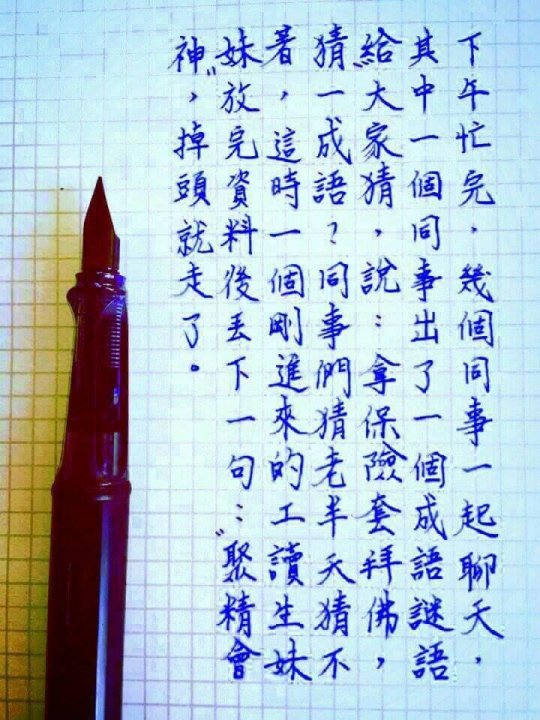 下午忙完，幾個同事一起聊天，
其中一個同事出了一個成語謎語
給大家猜，說：拿保險套拜佛，
猜一成語？同事們猜老半天猜不
著，這時一個剛進來的工讀生妹
妹放完資料後丟下一句："聚精會
神"，掉頭就走了。